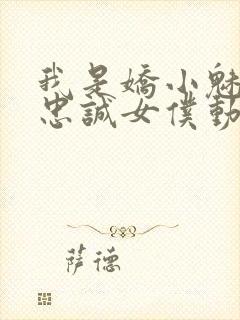 我是嬌小魅
忠誠女僕動
薩德